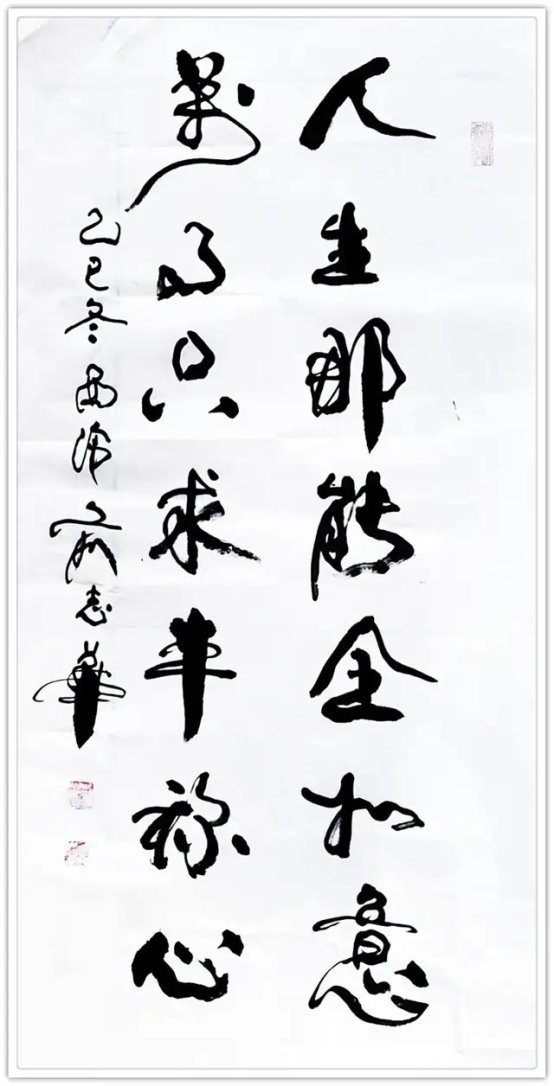 人生那能全如意
萬事只求半称心
乙巳冬西沛俞志華